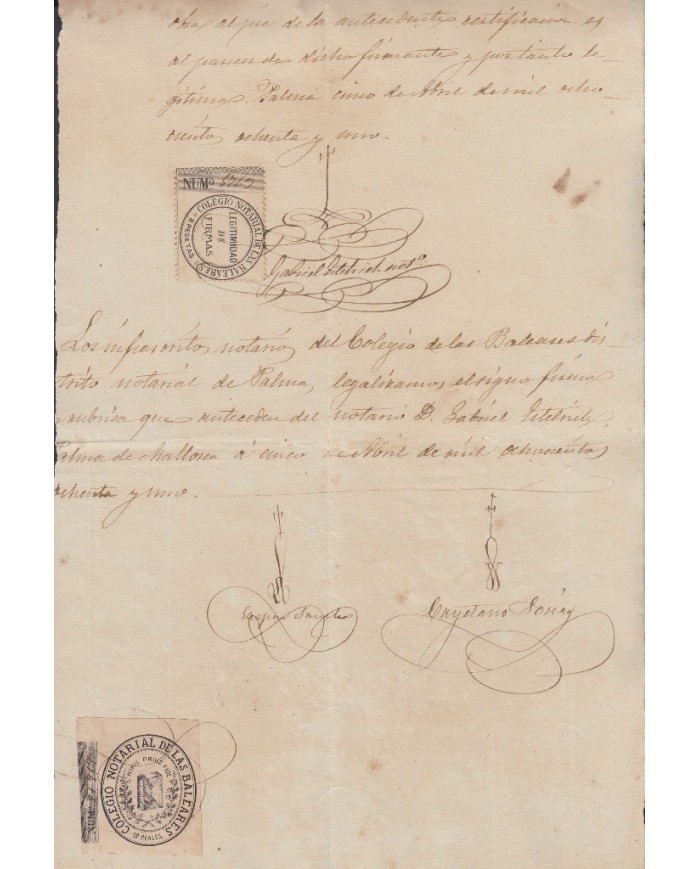 obra al pie de la antecedente certificación es
al parecer de dicho firmante y portanto le-
gitima. Palma cinco de Abril de mil ocho-
ciento ochenta y uno.
NUMº
COLEGIO NOTARIAL DE LAS BALEARES
2 PESETAS
LEGITIMIDAD
DE
FIRMAS
Gabriel Estelrich notº
Los infrascritos notarios del Colegio de las Baleares dis-
trito notarial de Palma, legalizamos el signo firma
rubrica que anteceden del notario D. Gabriel Estelrich.
Palma de Mallorca á cinco de Abril de mil ochocientos
ochenta y uno.
Gaspar
Cayetano
COLEGIO NOTARIAL DE LAS BALEARES
NIHIL PRIUS FIDE
REALES
NUMº